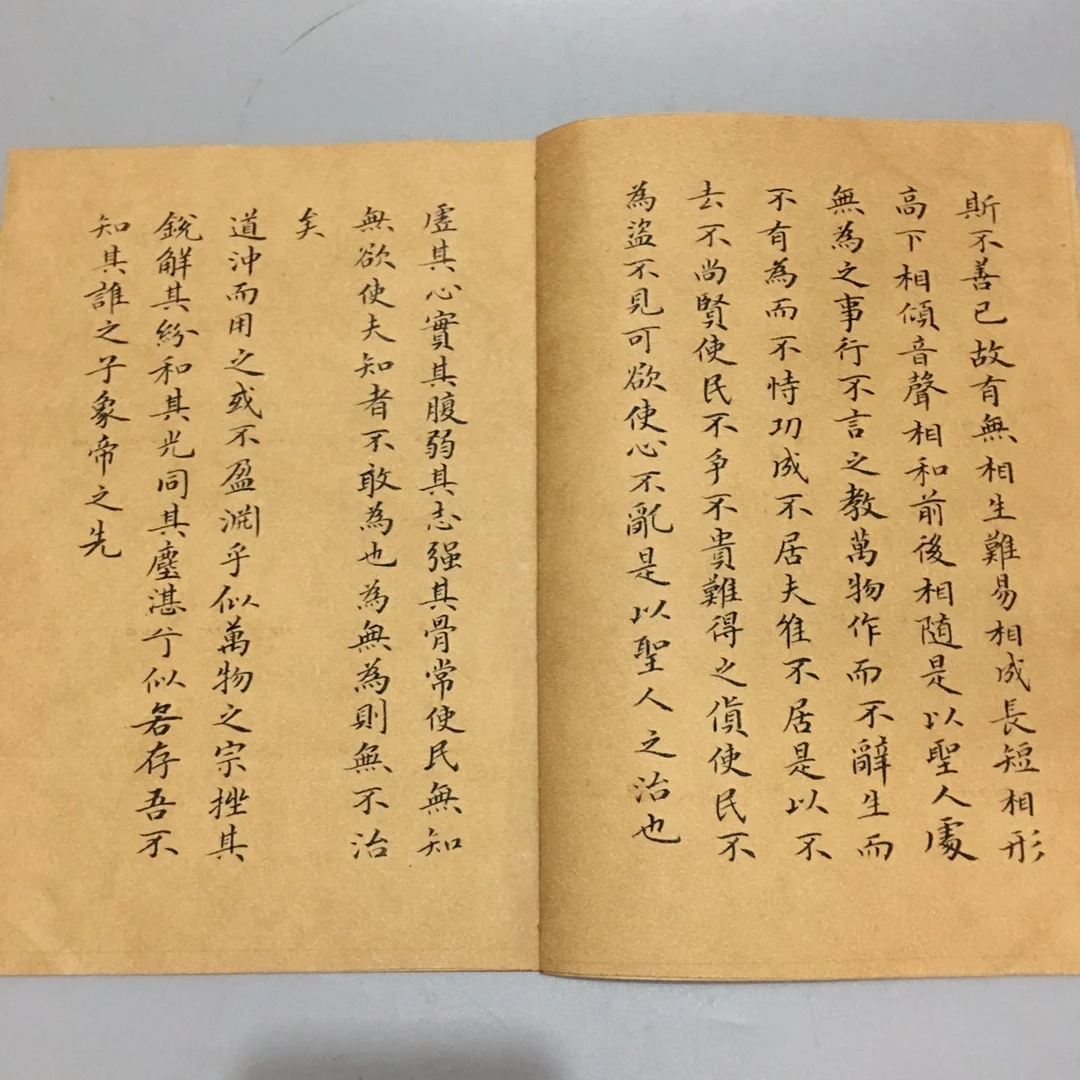 斯不善已故有無相生難易相成長短相形
高下相傾音聲相和前後相随是以聖人處
無為之事行不言之教萬物作而不辭生而
不有為而不恃功成不居夫惟不居是以不
去不尚賢使民不争不貴難得之貨使民不
為盜不見可欲使心不亂是以聖人之治也
虚其心實其腹弱其志强其骨常使民無知
無欲使夫知者不敢為也為無為則無不治
矣
道沖而用之或不盈淵乎似萬物之宗挫其
銳解其紛和其光同其塵湛兮似若存吾不
知其誰之子象帝之先